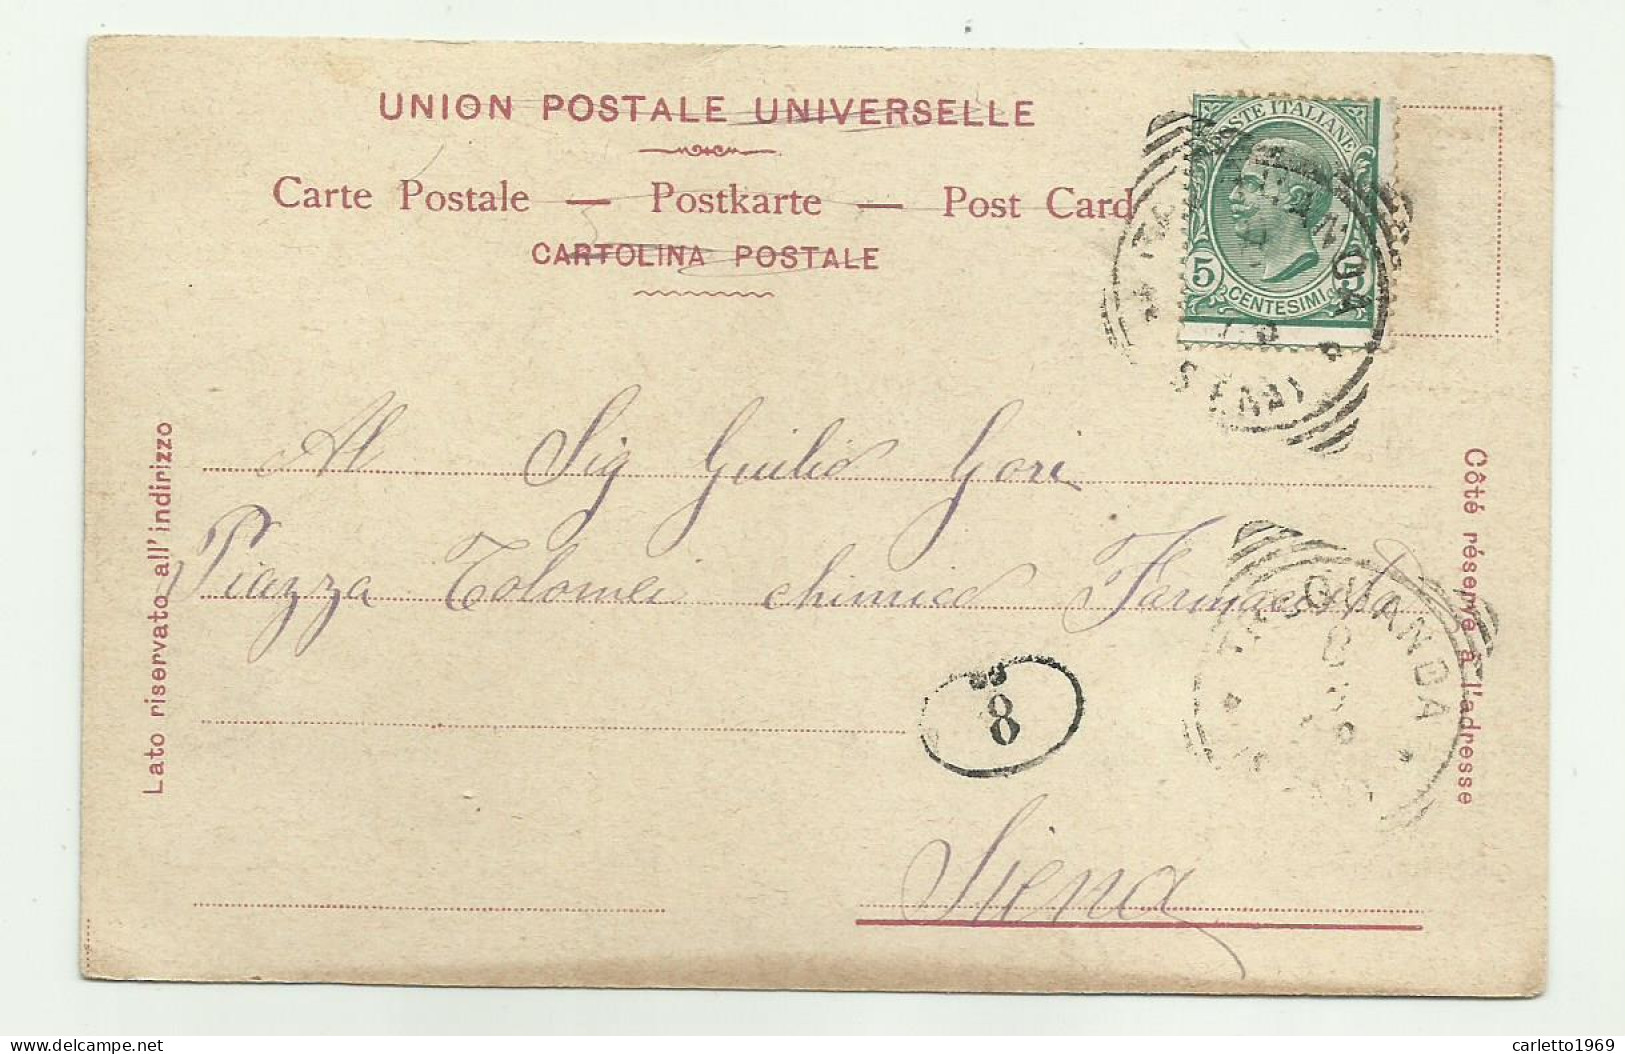 UNION POSTALE UNIVERSELLE
Carte Postale — Postkarte — Post Card
CARTOLINA POSTALE
POSTE ITALIANE
5 CENTESIMI 5
(SIENA)
Al Sig Guilio Gori
Piazza Tolomei chimico Farmacista
TREQUANDA
8
Siena
Lato riservato all'indirizzo
Côté réservé à l'adresse
delcampe.net
carletto1969